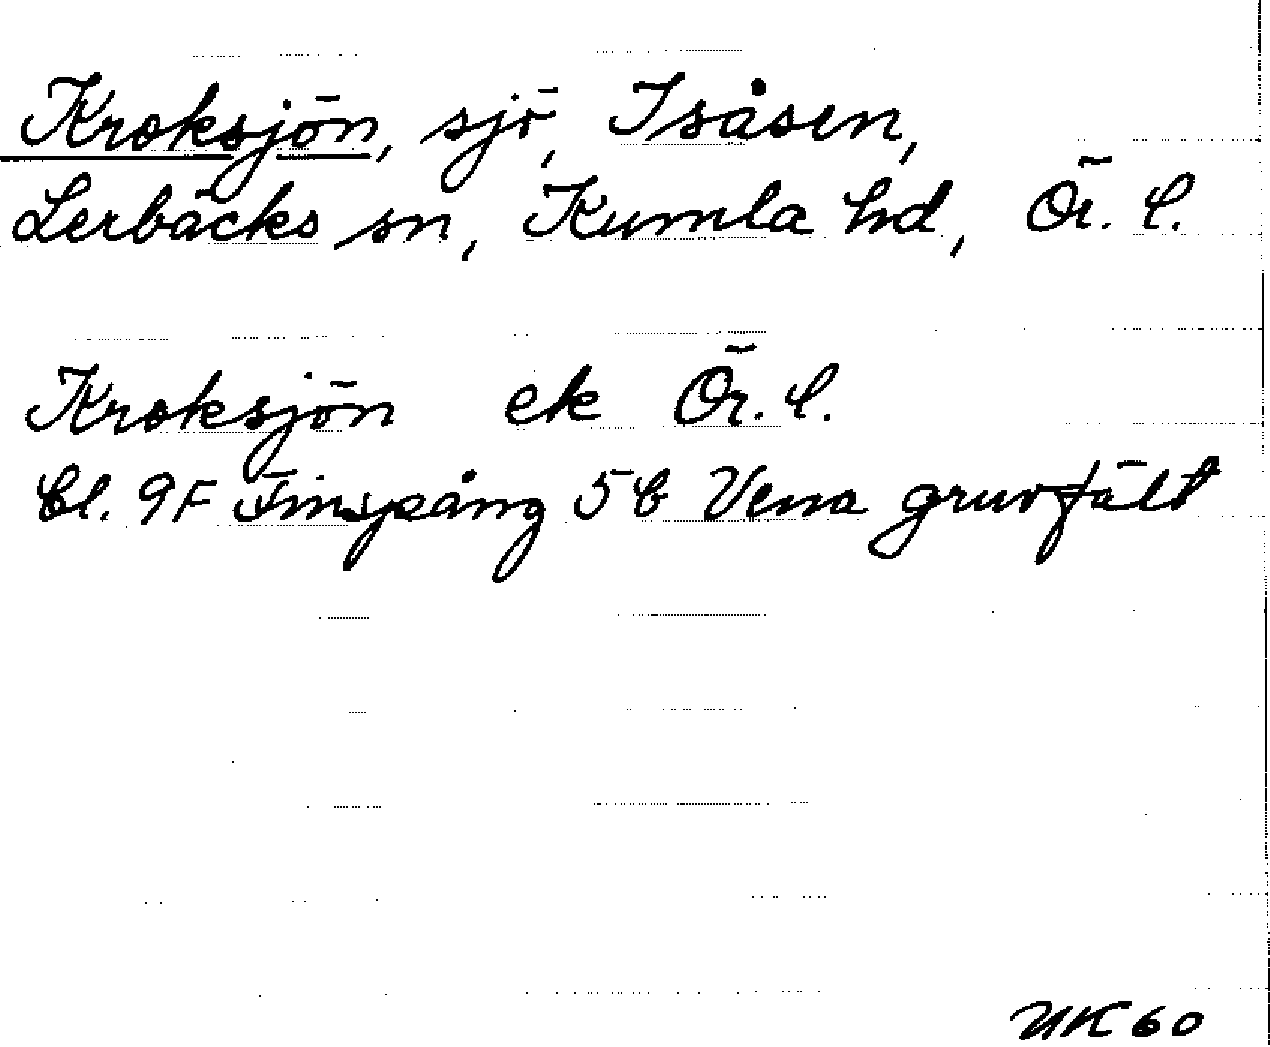 Kroksjön, sjö, Isåsen,
Lerbäcks sn, Kumla hd, Ör. l.
Kroksjön ek Ör. l.
bl. 9F Finspång 5b Vena gruvfält
UK 60